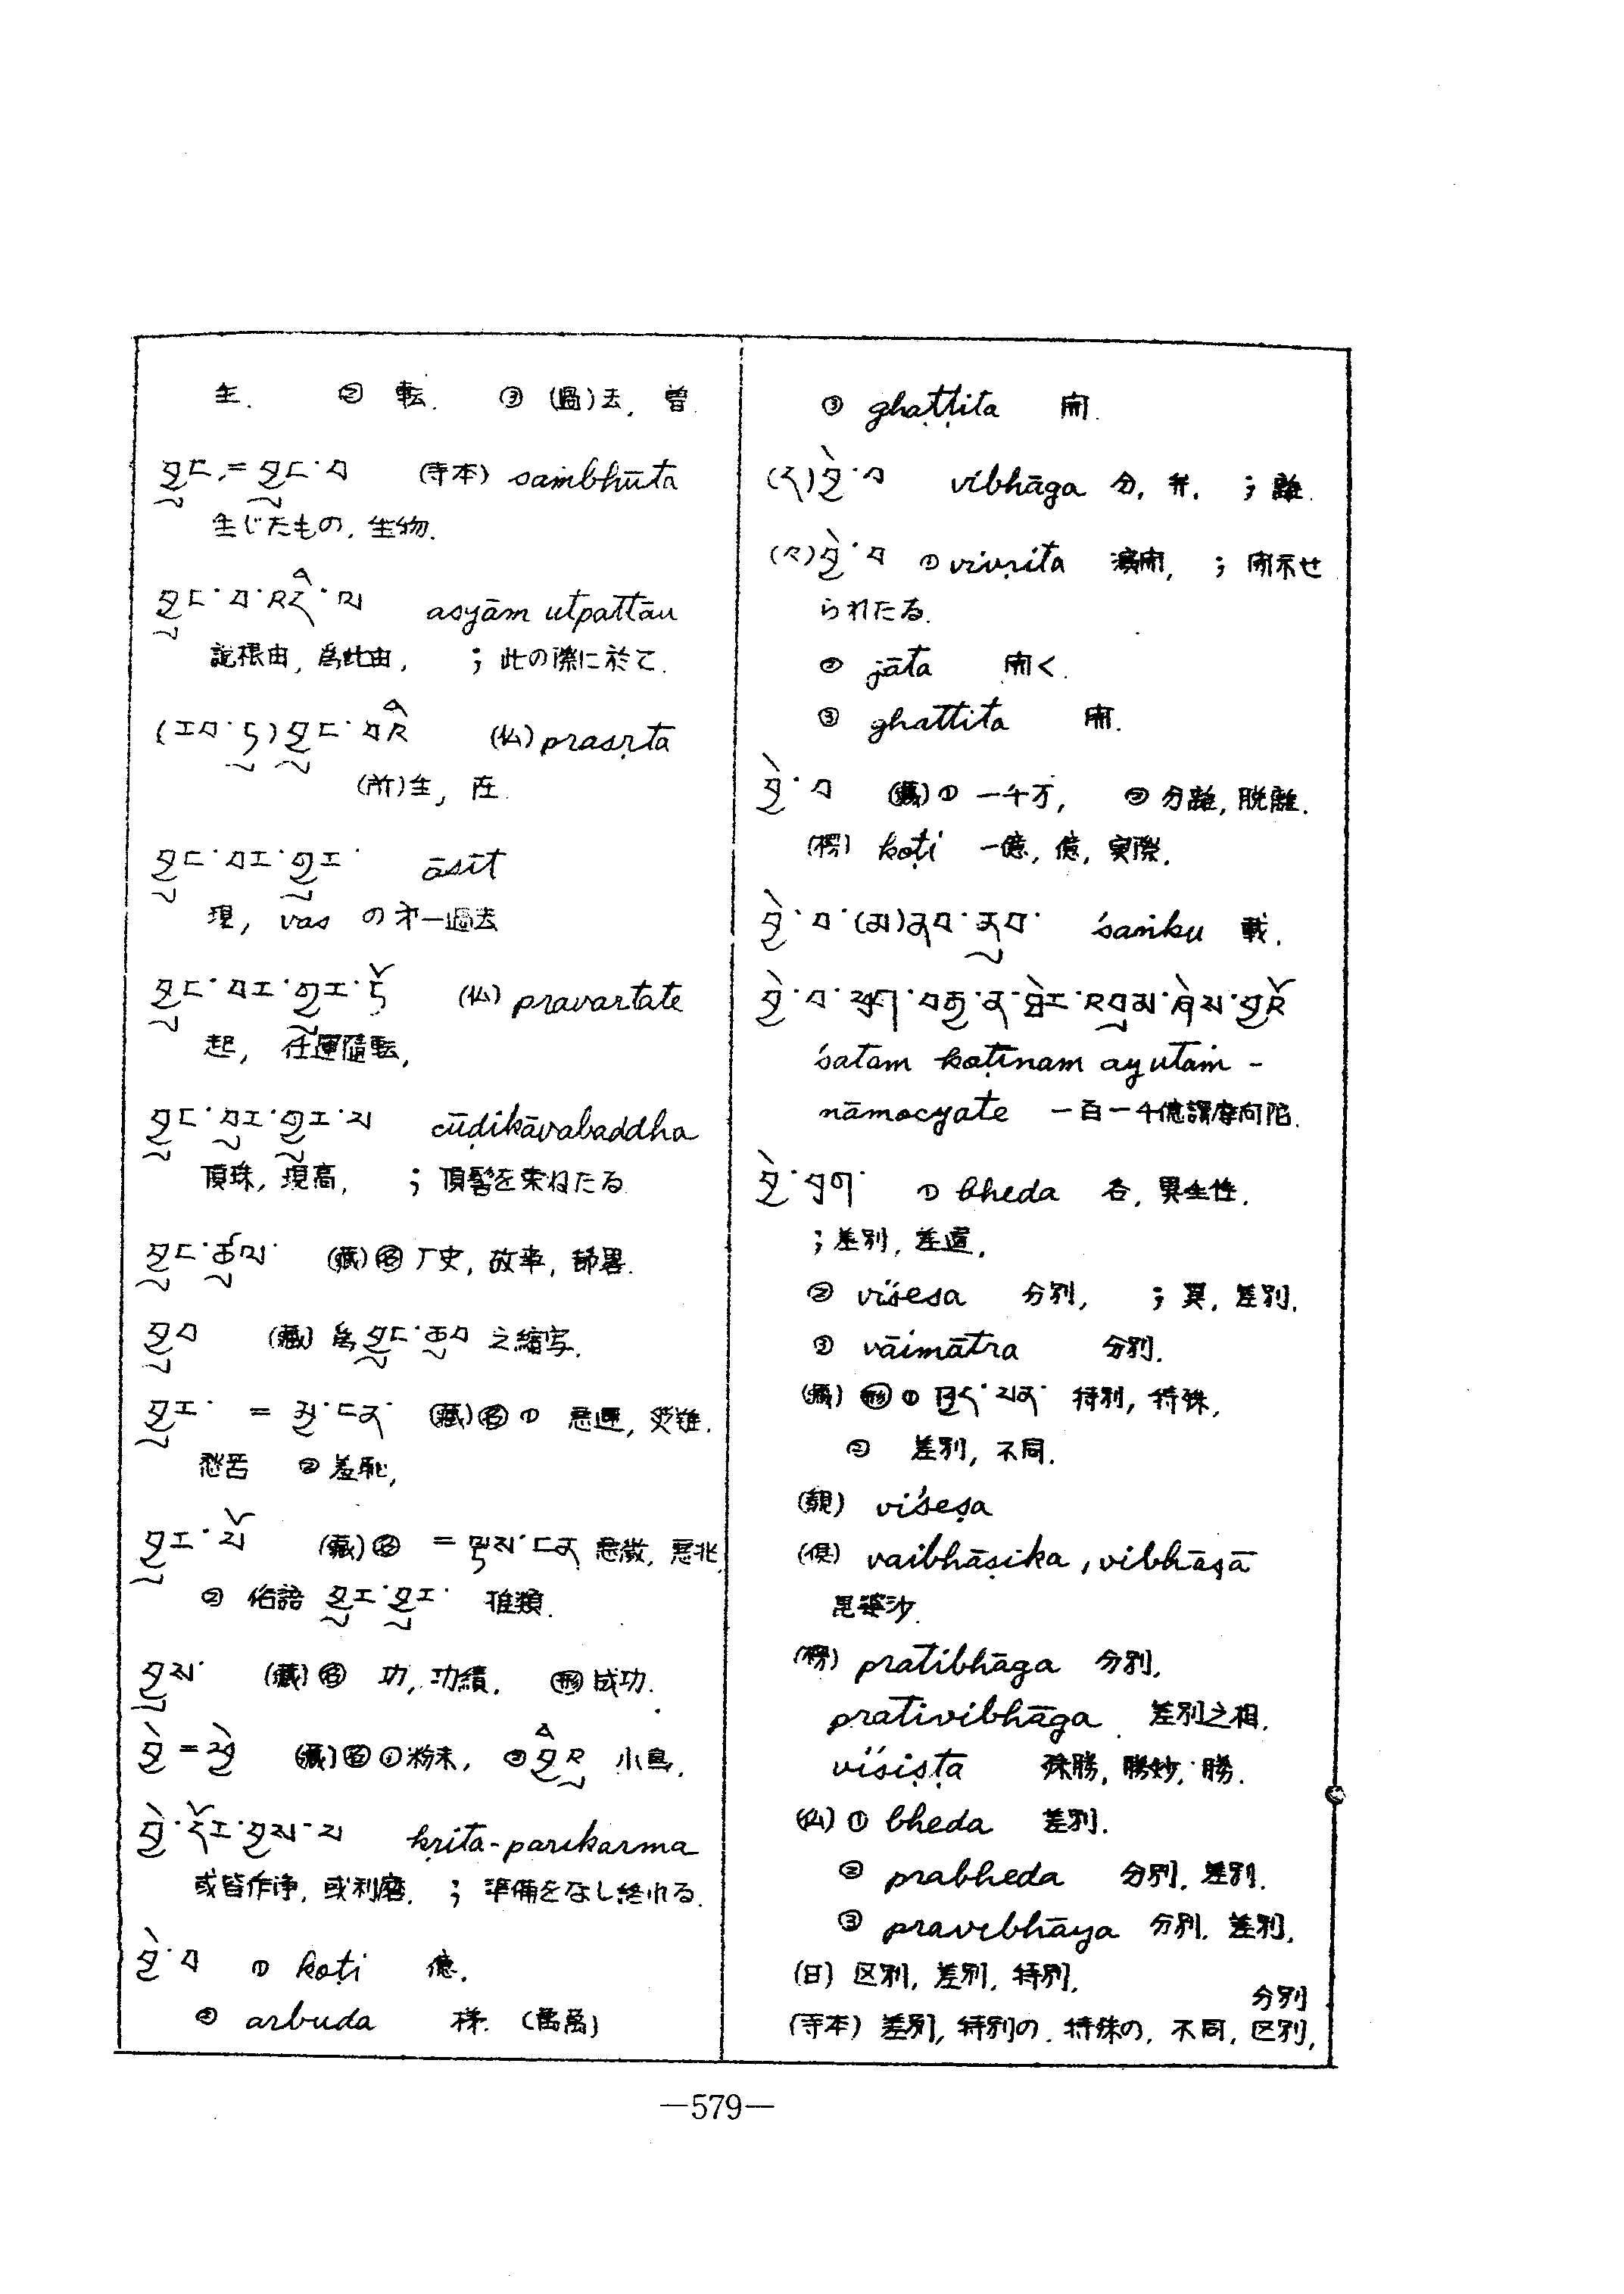 生.　② 転.　③ (過)去, 曽.
བྱུང.=བྱུང་བ　(寺本) saṁbhūta
生じたもの, 生物.
བྱུང་བ་འདི་ལ　asyām utpattāu
説根由, 為此由,　; 此の際に於て.
(རབ་ཏུ)བྱུང་བའི　(仏) prasṛta
(所)生, 在.
བྱུང་བར་གྱུར་　āsīt
現, vas の才一過去
བྱུང་བར་གྱུར་ཏོ　(仏) pravartate
起, 任運随転,
བྱུང་བུར་གྱུར་པ　cūḍikāvabaddha
頂珠, 現高,　; 頂髻を束ねたる.
བྱུང་ཚུལ་　(藏)㊔ 厂史, 故事, 部署.
བྱུབ　(藏) 為 བྱུང་ 之縮写.
བྱུར་ = མྱ་ངན་　(藏)㊔ ① 悪運, 災難.
愁苦　② 羞恥,
བྱུར་པོ　(藏)㊔ = ལྟས་ངན 悪徴, 悪兆,
② 俗語 བྱུར་བྱུར་ 堆類.
བྱུས་　(藏)㊔ 功, 功績.　㊒ 成功.
བྱེ = ཕྱེ　(藏)㊔ ① 粉末,　② བྱིའུ 小鳥.
བྱེ་དོར་བྱས་པ　kṛita-parikarma
或皆作浄, 或利磨.　; 準備をなし終れる.
བྱེ་བ　① koṭi　億.
② arbuda　　(萬萬)
③ ghaṭṭita　開.
(ད)བྱེ་བ　vibhāga 分, 弁,　; 離.
(々)བྱེ་བ　① vivṛita　演開,　; 開示せ
られたる.
② jāta　開く.
③ ghattita　開.
བྱེ་བ　(藏)① 一千万,　② 分離, 脱離.
(楞) koṭi 一億, 億, 実際.
བྱེ་བ་(མ)ནབ་ནུབ་　śaṅku 載.
བྱེ་བ་ཕྲག་བརྒྱ་ན་ཐེར་འབུམ་ཞེས་བྱའོ
śatam koṭīnam ayutaṁ -
nāmocyate 一百一千億謂摩向陷.
བྱེ་བྲག་　① bheda 各, 異生性.
; 差別, 差違,
② viśesa 分別,　; 異, 差別.
③ vāimātra　分別.
(藏) ㊒ ① ཁྱད་པར་ 特別, 特殊,
② 差別, 不同.
(観) viśeṣa
(倶) vaibhāṣika, vibhāṣā
毘婆沙.
(楞) pratibhāga 分別,
prativibhāga. 差別之相.
viśiṣṭa　殊勝, 勝妙, 勝.
(仏) ① bheda 差別.
② prabheda 分別, 差別.
③ pravibhāya 分別. 差別.
(日) 区別, 差別, 特別,
分別
(寺本) 差別, 特別の, 特殊の, 不同, 区別,
—579—